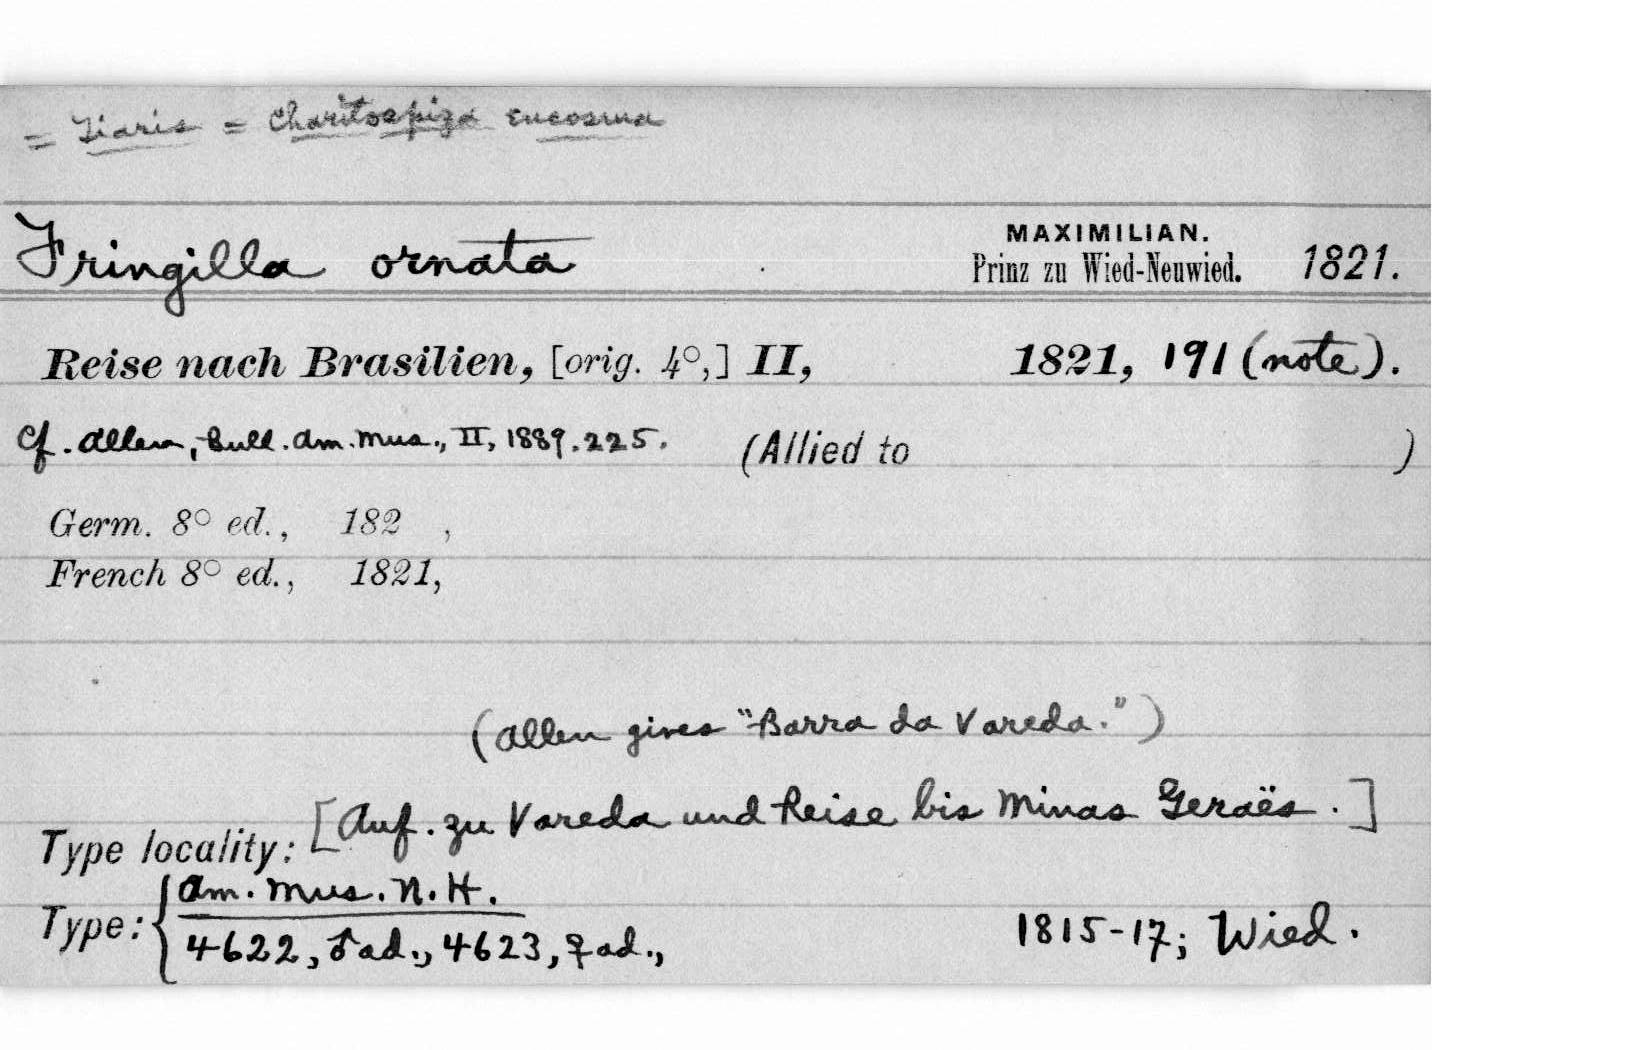 = Tiaris = Charitospiza eucosma
Fringilla ornata MAXIMILIAN. Prinz zu Wied-Neuwied. 1821.
Reise nach Brasilien, [orig. 4°,] II, 1821, 191 (note).
Cf. Allen, Bull. Am. Mus., II, 1889. 225. (Allied to )
Germ. 8° ed., 182 ,
French 8° ed., 1821,
(Allen gives "Barra da Vareda.")
Type locality: [Auf. zu Vareda und Reise bis Minas Geraës.]
Type: { Am. Mus. N. H.
4622, ♂ ad., 4623, ♀ ad., 1815-17; Wied.